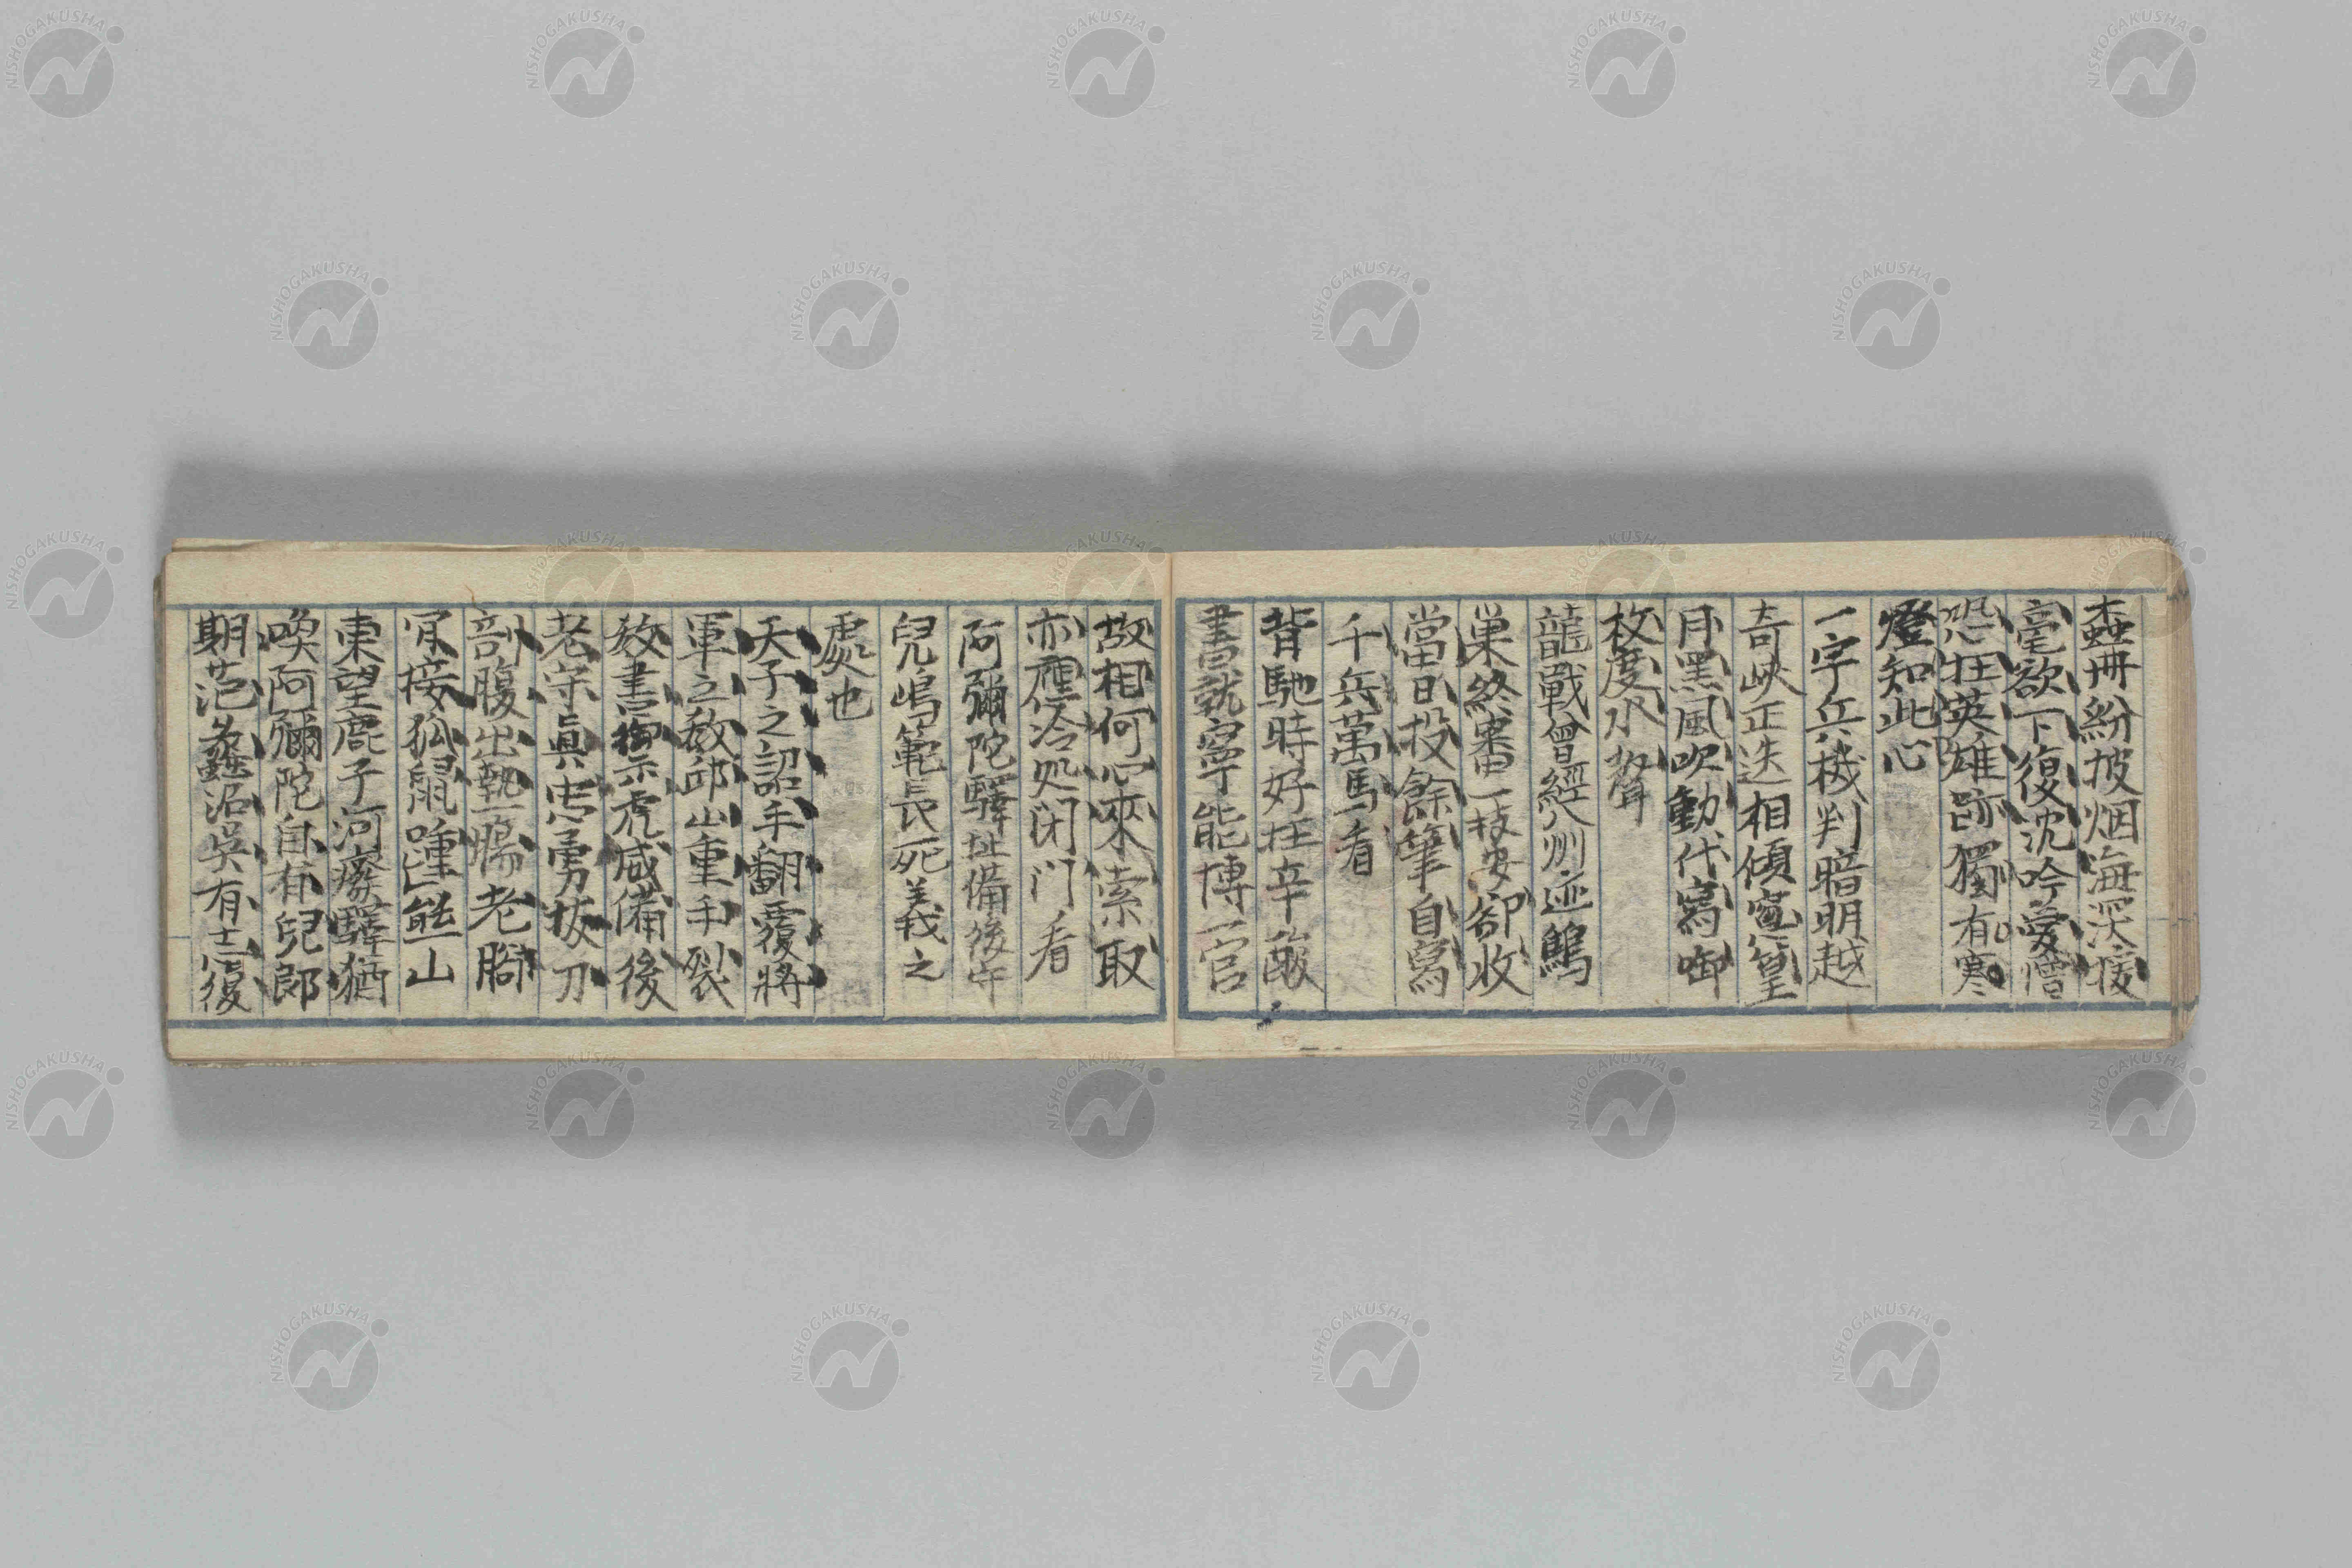 蠧冊紛披烟海深援
毫欲下復沈吟愛憎
恐枉英雄跡獨有寒
燈知此心
一字兵機判暗明越
奇峽正迭相傾
月黑風吹動代寫啣
枚度水聲
龍戰曾經八州迹鷦
巢終寄一枝安卻收
當日投餘筆自寫
千兵萬馬看
背馳時好在辛酸
書就寧能博一官
故相何心來索取
亦應冷処閉门看
阿彌陀驛址備後守
兒嶋範長死義之
處也
天子之詔手翻覆將
軍之敎邱山重手裂
敎書示虎威備後
老守眞忠勇拔刀
剖腹出熱腸老脚
肎接狐鼠蹱熊山
東望鹿子河廢驛猶
喚阿彌陀自有兒郎
期范蠡沼吳有志復